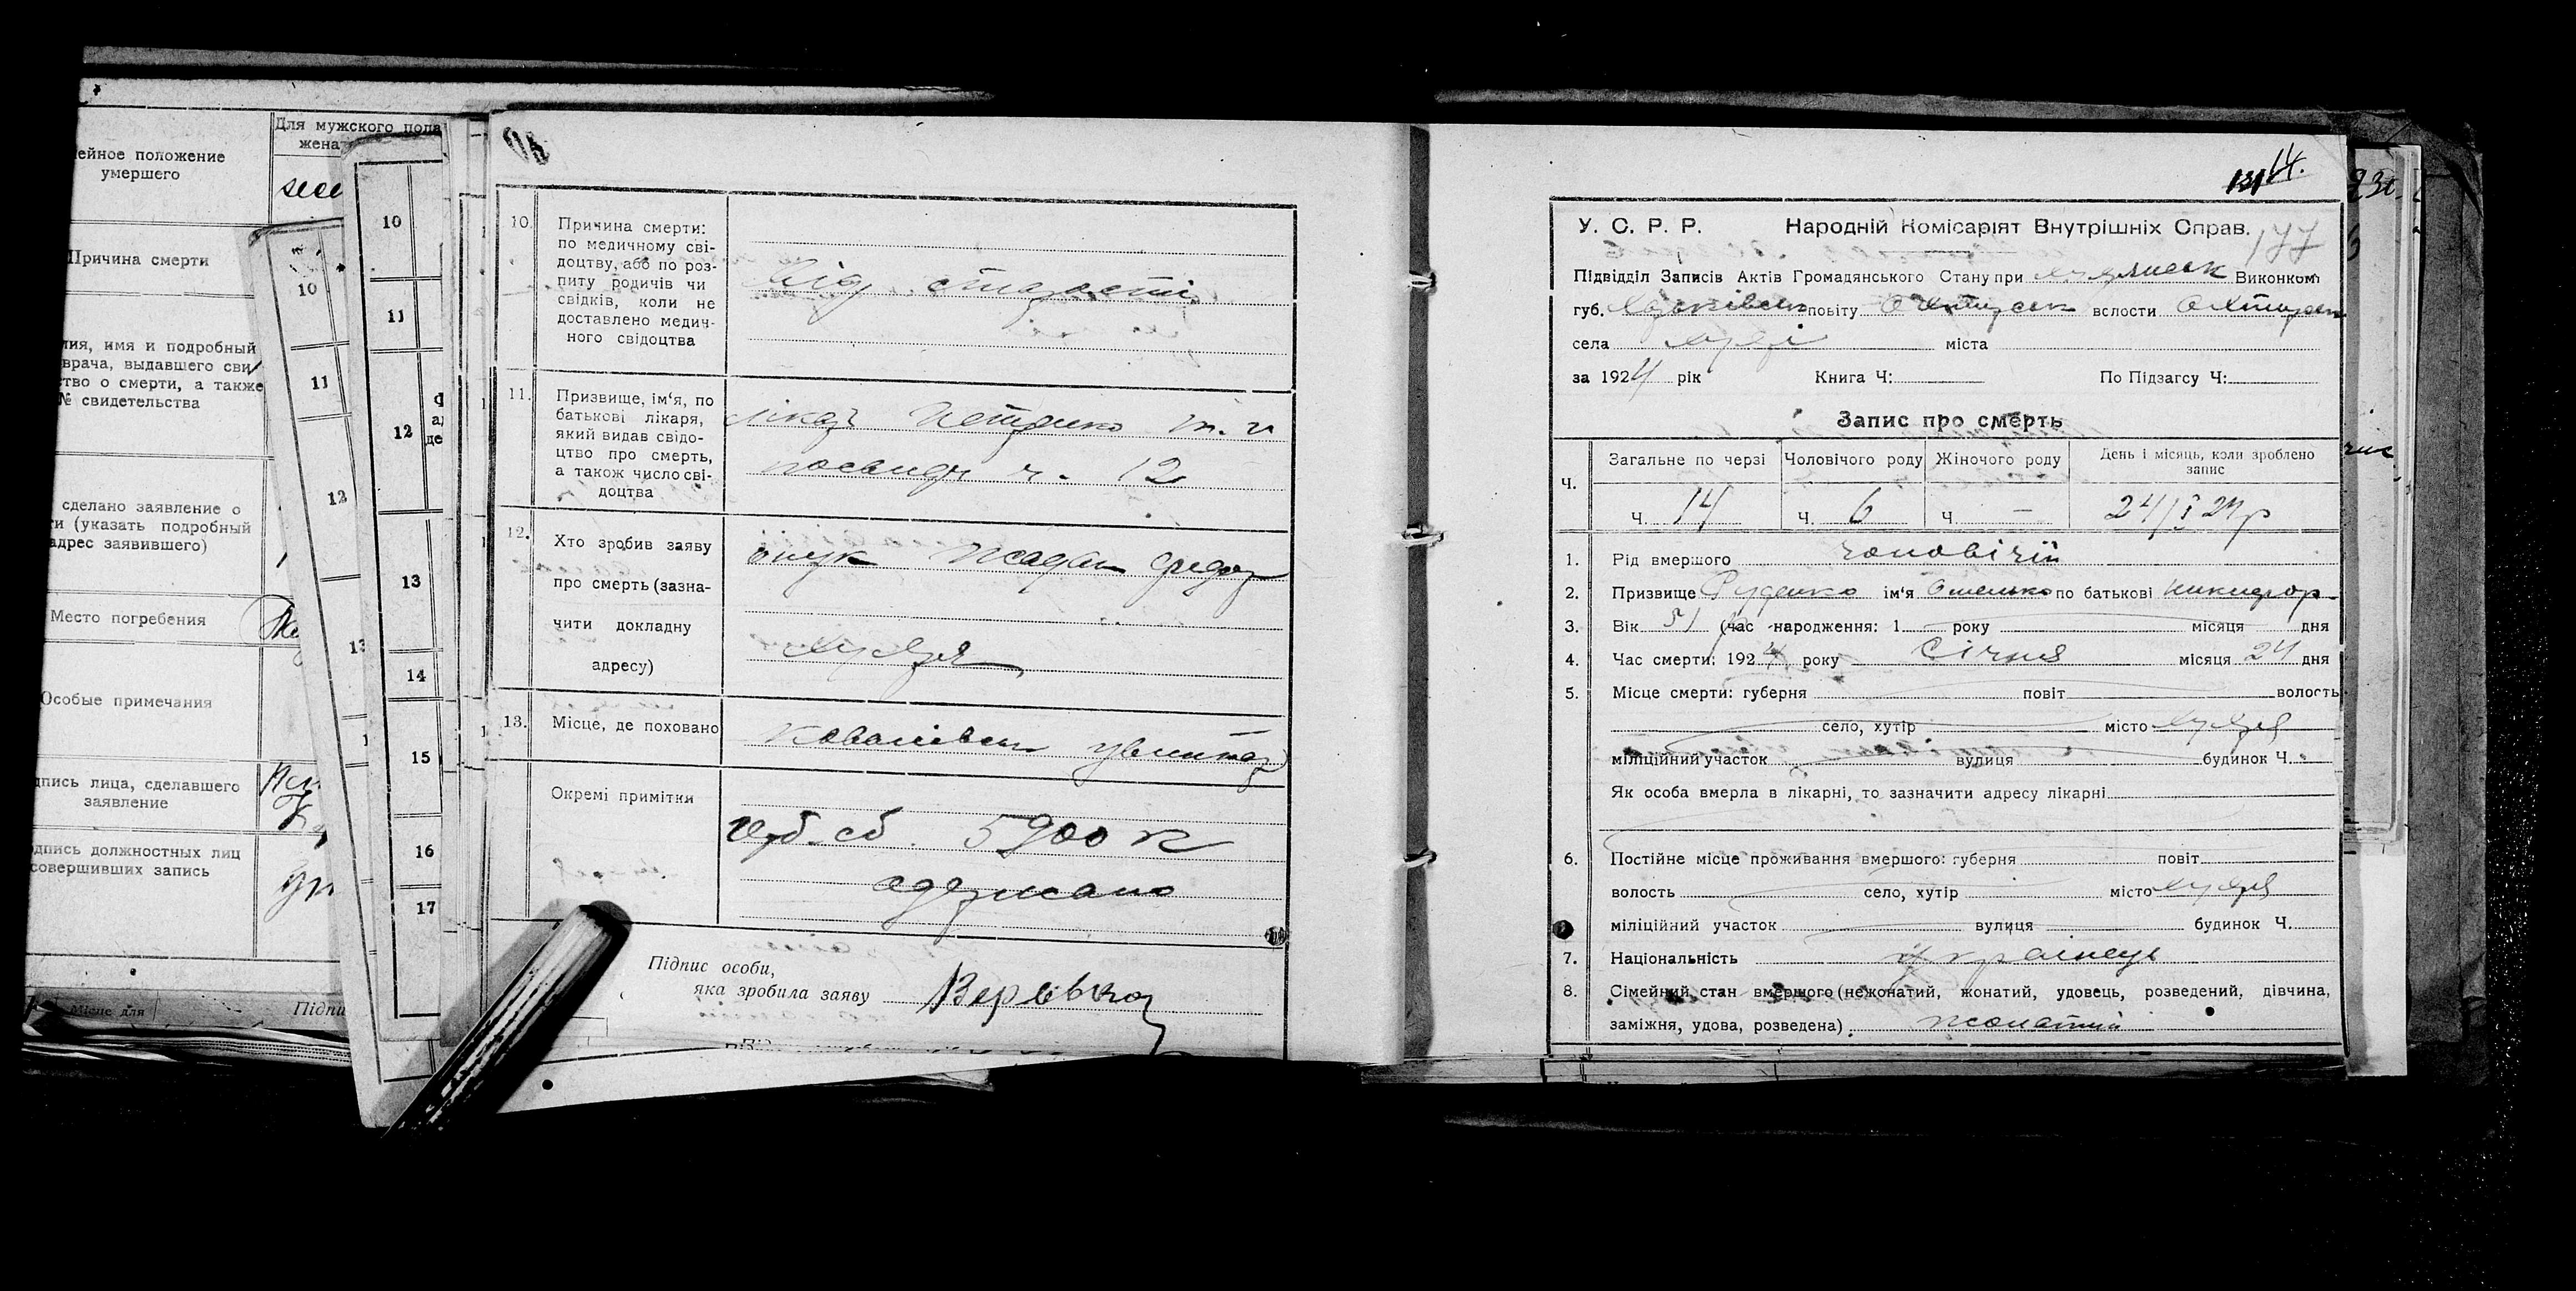 Для мужского пола
жена
ейное положение
умершего
Причина смерти
имя и подробный
врача, выдавшего сви
ство о смерти, а также
№ свидетельства
сделано заявление о
ти (указать подробный
адрес заявившего)
Место погребения
Особые примечания
дпись лица, сделавшего
заявление
одпись должностных лиц
совершивших запись
місце для
Підпи
10
11
12
10
11
12
13
14
15
16
17
10. Причина смерти:
по медичному сві-
доцтву, або по роз-
питу родичів чи
свідків, коли не
доставлено медич-
ного свідоцтва
Від старости
11. Призвище, ім'я, по
батькові лікаря,
який видав свідо-
цтво про смерть,
а також число сві-
доцтва
лікар Петренко
посвидч ч. 12
12. Хто зробив заяву
про смерть (зазна-
чити докладну
адресу)
онук Жадан Федор
13. Місце, де поховано
Окремі примітки
сб. 5900 к
одержано
Підпис особи,
яка зробила заяву Верьовка
14.
177
У. С. Р. Р. Народній Комісаріят Внутрішніх Справ.
Підвідділ Записів Актів Громадянського Стану при Виконком
губ. Харківськ повіту Охтирськ волости Охтирськ
села міста
за 1924 рік Книга Ч: По Підзагсу Ч:
Запис про смерть
Ч. Загальне по черзі Чоловічого роду Жіночого роду День і місяць, коли зроблено
запис
Ч. 14 Ч. 6 Ч. — 24/I 24 р
1. Рід вмершого чоловічий
2. Призвище Руденко ім'я Омелько по батькові Никифор.
3. Вік 51 (час народження: 1 року місяця дня
4. Час смерти: 1924 року Січня місяця 24 дня
5. Місце смерти: губерня повіт волость
село, хутір місто
міліційний участок вулиця будинок Ч.
Як особа вмерла в лікарні, то зазначити адресу лікарні
6. Постійне місце проживання вмершого: губерня повіт
волость село, хутір місто
міліційний участок вулиця будинок Ч.
7. Національність українець
8. Сімейний стан вмершого (нежонатий, жонатий, удовець, розведений, дівчина,
заміжня, удова, розведена) жонатий